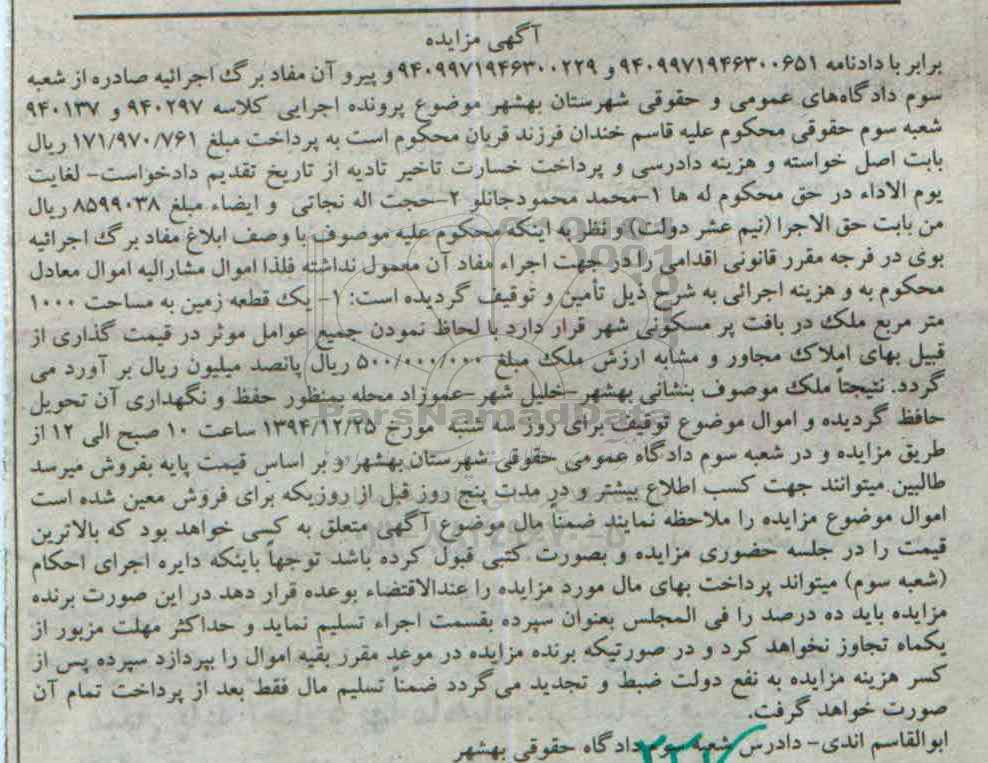 آگهی مزایده
برابر با دادنامه ۹۴۰۹۹۷۱۹۴۶۳۰۰۶۵۱ و ۹۴۰۹۹۷۱۹۴۶۳۰۰۲۲۹ و پیرو آن مفاد برگ اجرائیه صادره از شعبه
سوم دادگاه‌های عمومی و حقوقی شهرستان بهشهر موضوع پرونده اجرایی کلاسه ۹۴۰۲۹۷ و ۹۴۰۱۳۷
شعبه سوم حقوقی محکوم علیه قاسم خندان فرزند قربان محکوم است به پرداخت مبلغ ۱۷۱/۹۷۰/۷۶۱ ریال
بابت اصل خواسته و هزینه دادرسی و پرداخت خسارت تاخیر تادیه از تاریخ تقدیم دادخواست- لغایت
یوم الاداء در حق محکوم له ها ۱-محمد محمودجانلو ۲-حجت اله نجاتی و ایضاء مبلغ ۸۵۹۹۰۳۸ ریال
من بابت حق الاجرا (نیم عشر دولت) و نظر به اینکه محکوم علیه موصوف با وصف ابلاغ مفاد برگ اجرائیه
بوی در فرجه مقرر قانونی اقدامی را در جهت اجراء مفاد آن معمول نداشته فلذا اموال مشارالیه اموال معادل
محکوم به و هزینه اجرائی به شرح ذیل تأمین و توقیف گردیده است: ۱- یک قطعه زمین به مساحت ۱۰۰۰
متر مربع ملک در بافت پر مسکونی شهر قرار دارد با لحاظ نمودن جمیع عوامل موثر در قیمت گذاری از
قبیل بهای املاک مجاور و مشابه ارزش ملک مبلغ ۵۰۰/۰۰۰/۰۰۰ ریال پانصد میلیون ریال بر آورد می
گردد. نتیجتاً ملک موصوف بنشانی بهشهر-خلیل شهر-عموزاد محله بمنظور حفظ و نگهداری آن تحویل
حافظ گردیده و اموال موضوع توقیف برای روز سه شنبه مورخ ۱۳۹۴/۱۲/۲۵ ساعت ۱۰ صبح الی ۱۲ از
طریق مزایده و در شعبه سوم دادگاه عمومی حقوقی شهرستان بهشهر و بر اساس قیمت پایه بفروش میرسد
طالبین میتوانند جهت کسب اطلاع بیشتر و در مدت پنج روز قبل از روزیکه برای فروش معین شده است
اموال موضوع مزایده را ملاحظه نمایند ضمناً مال موضوع آگهی متعلق به کسی خواهد بود که بالاترین
قیمت را در جلسه حضوری مزایده و بصورت کتبی قبول کرده باشد توجهاً باینکه دایره اجرای احکام
(شعبه سوم) میتواند پرداخت بهای مال مورد مزایده را عندالاقتضاء بوعده قرار دهد در این صورت برنده
مزایده باید ده درصد را فی المجلس بعنوان سپرده بقسمت اجراء تسلیم نماید و حداکثر مهلت مزبور از
یکماه تجاوز نخواهد کرد و در صورتیکه برنده مزایده در موعد مقرر بقیه اموال را بپردازد سپرده پس از
کسر هزینه مزایده به نفع دولت ضبط و تجدید می‌گردد ضمناً تسلیم مال فقط بعد از پرداخت تمام آن
صورت خواهد گرفت.
ابوالقاسم اندی- دادرس شعبه سوم دادگاه حقوقی بهشهر
ParsNamadData